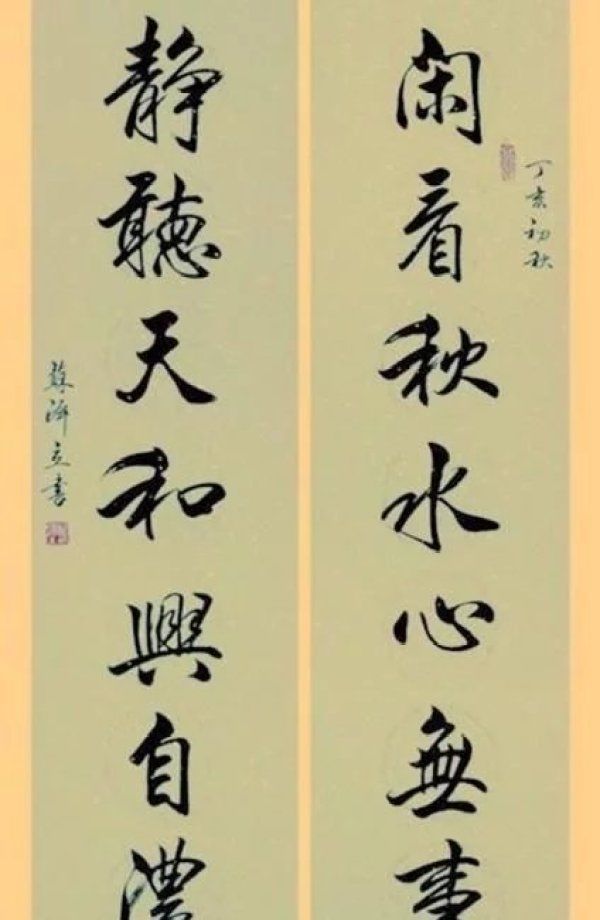 丁亥初秋
閑看秋水心無事
静聽天和興自濃
蘇澤立書